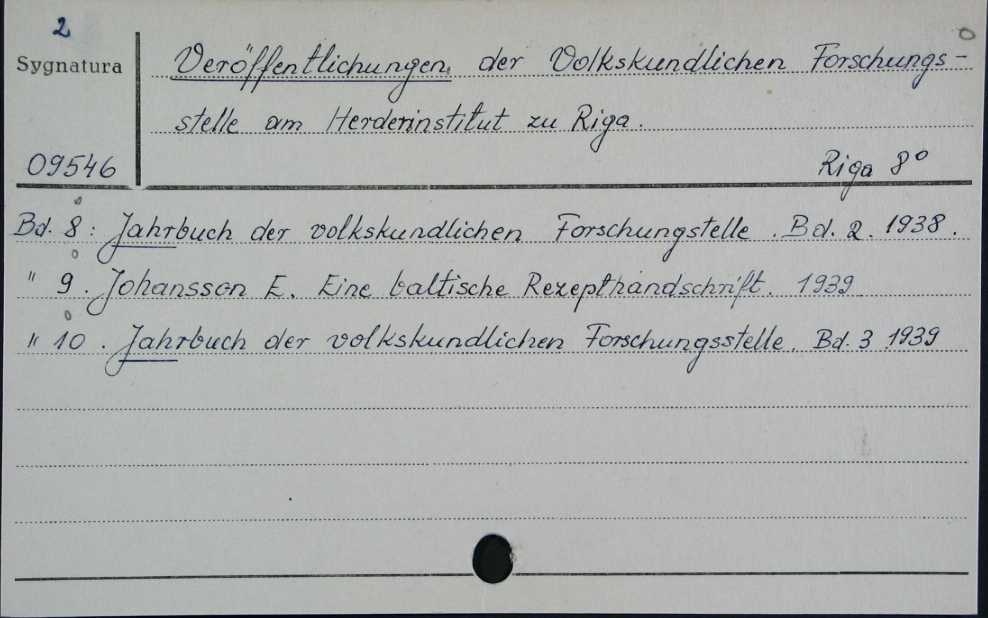 2
Sygnatura
09546
Veröffentlichungen der Volkskundlichen Forschungs-
stelle am Herderinstitut zu Riga.
Riga 8°
Bd. 8: Jahrbuch der volkskundlichen Forschungstelle. Bd. 2. 1938.
" 9. Johansson E. Eine baltische Rezepthandschrift. 1939
" 10. Jahrbuch der volkskundlichen Forschungsstelle. Bd. 3 1939